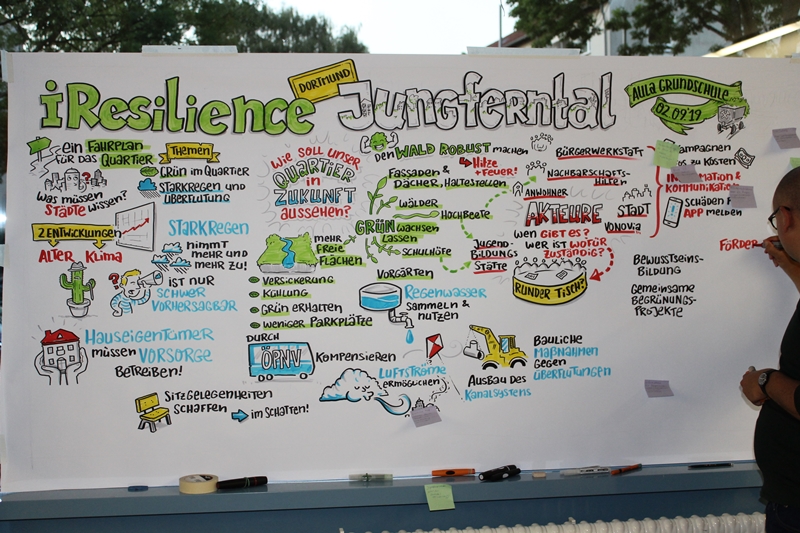 iResilience
DORTMUND
Jungferntal
AULA GRUNDSCHULE
02.09.19
ein FAHRPLAN
FÜR DAS QUARTIER
THEMEN
GRÜN IM QUARTIER
STARKREGEN UND
ÜBERFLUTUNG
WAS MÜSSEN
STÄDTE WISSEN?
2 ENTWICKLUNGEN
ALTER KLIMA
STARKREGEN
NIMMT
MEHR UND
MEHR ZU!
IST NUR
SCHWER
VORHERSAGBAR
HAUSEIGENTÜMER
MÜSSEN VORSORGE
BETREIBEN!
SITZGELEGENHEITEN
SCHAFFEN
IM SCHATTEN!
WIE SOLL UNSER
QUARTIER
IN
ZUKUNFT
AUSSEHEN?
MEHR
FREIE
FLÄCHEN
VERSICKERUNG
KÜHLUNG
GRÜN ERHALTEN
WENIGER PARKPLÄTZE
DURCH
ÖPNV
KOMPENSIEREN
DEN WALD ROBUST MACHEN
HITZE
+ FEUER!
FASSADEN &
DÄCHER, HALTESTELLEN
WÄLDER
HOCHBEETE
GRÜN WACHSEN
LASSEN
SCHULHÖFE
VORGÄRTEN
REGENWASSER
SAMMELN &
NUTZEN
LUFTSTRÖME
ERMÖGLICHEN
AUSBAU DES
KANALSYSTEMS
BAULICHE
MAẞNAHMEN
GEGEN
ÜBERFLUTUNGEN
BÜRGERWERKSTATT
NACHBARSCHAFTS-
HILFEN
ANWOHNER
AKTEURE
STADT
VONOVIA
WEN GIBT ES?
WER IST WOFÜR
ZUSTÄNDIG?
JUGEND-
BILDUNGS
STÄTTE
RUNDER TISCH?
KAMPAGNEN
ZU KOSTEN
KOMMUNIKATION
SCHÄDEN
APP MELDEN
FÖRDER
BEWUSSTSEINS-
BILDUNG
GEMEINSAME
BEGRÜNUNGS-
PROJEKTE